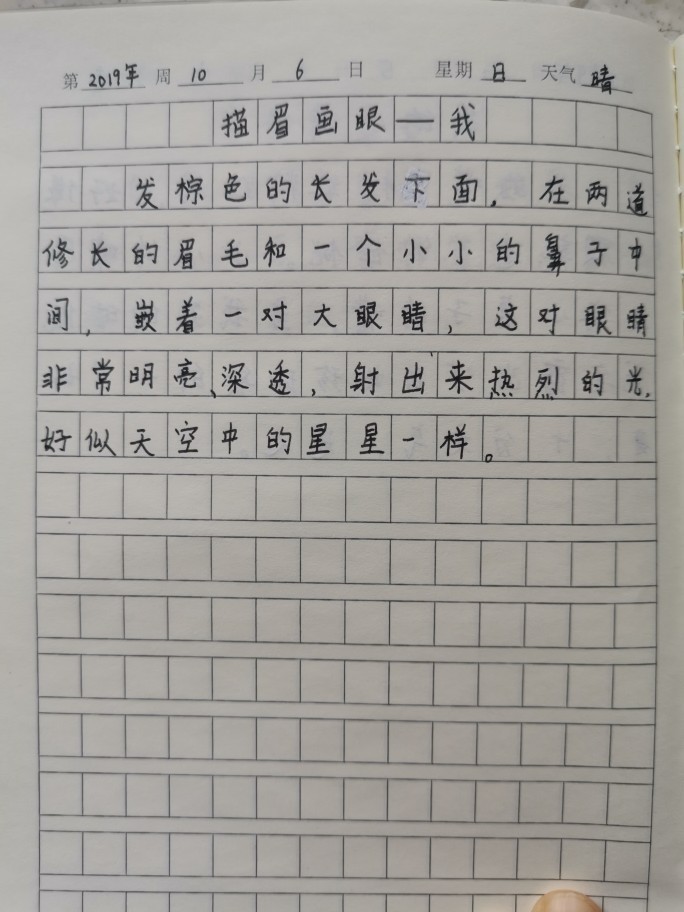 第 2019年 周 10 月 6 日 星期 日 天气 晴
描眉画眼——我
发棕色的长发下面，在两道
修长的眉毛和一个小小的鼻子中
间，嵌着一对大眼睛，这对眼睛
非常明亮、深透，射出来热烈的光，
好似天空中的星星一样。